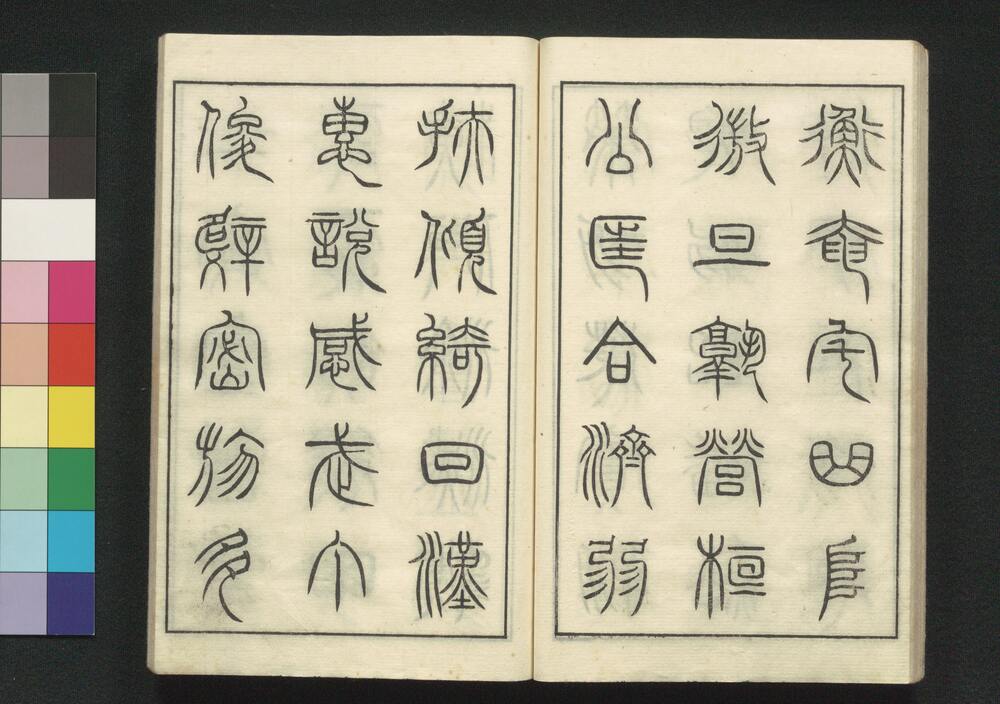 衡奄宅曲阜
微旦孰營桓
公匡合濟弱
扶傾綺回漢
惠說感武丁
俊乂密勿多